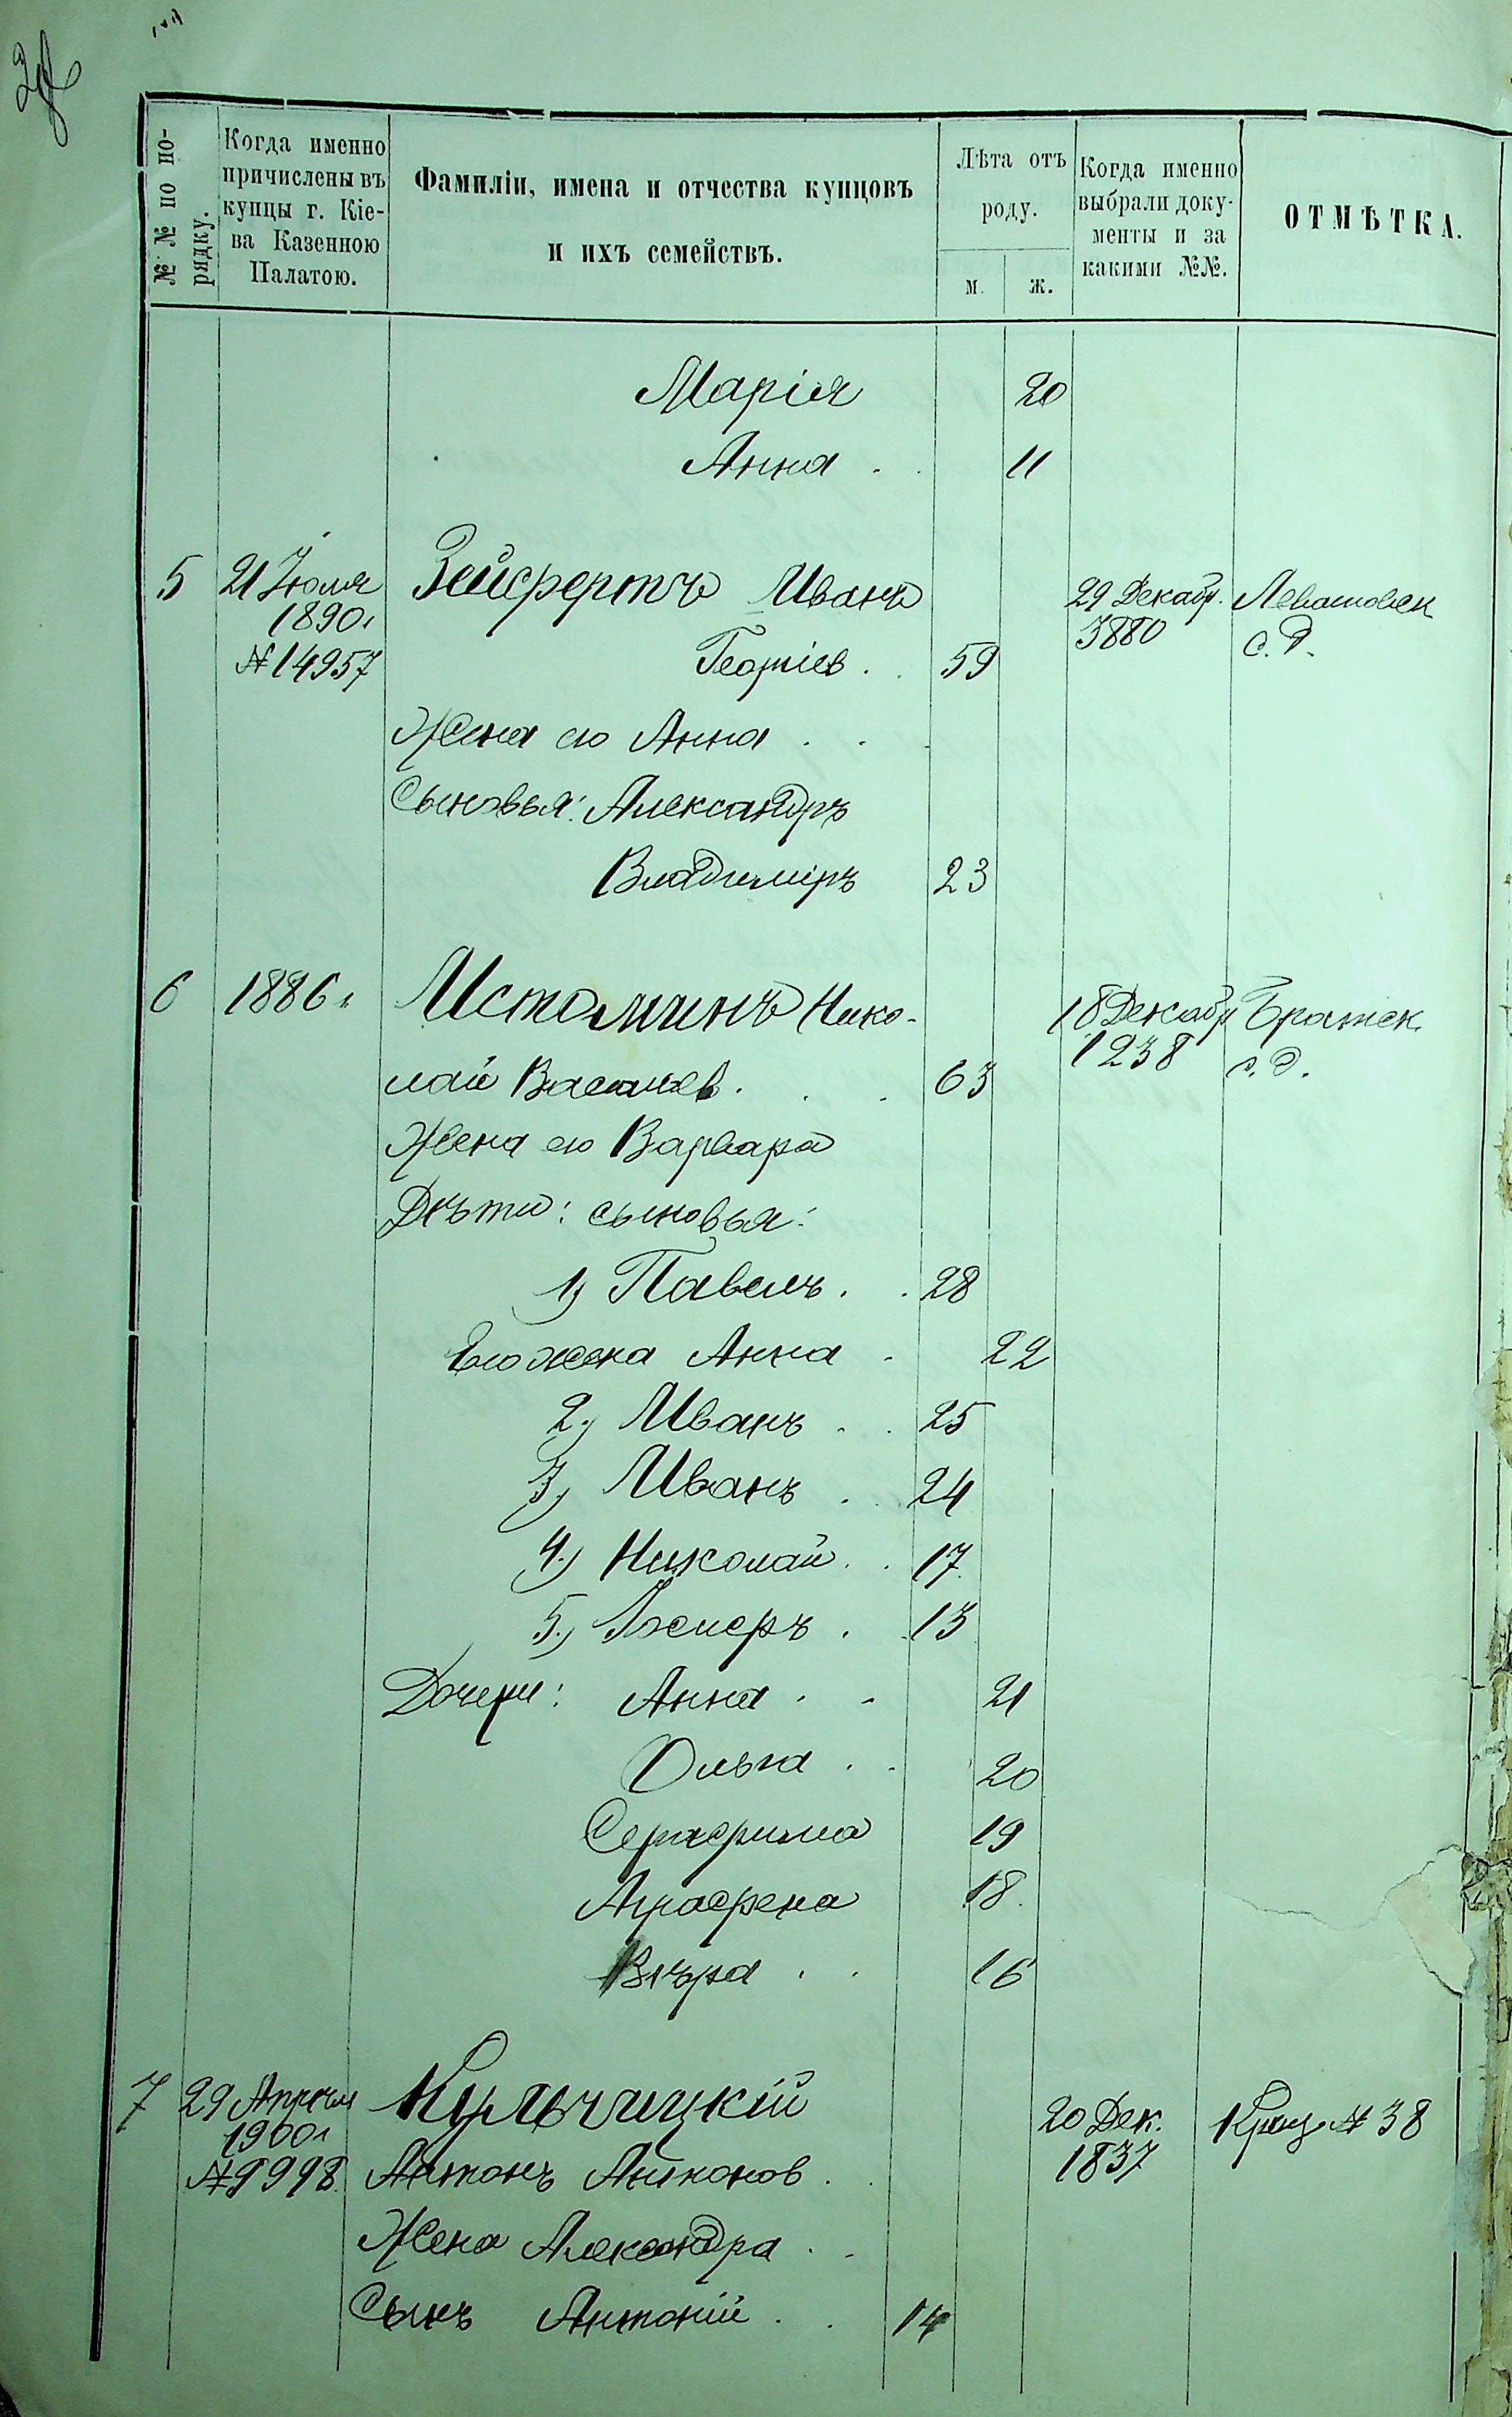 № № по по-
рядку.
Когда именно
причислены въ
купцы г. Кіе-
ва Казенною
Палатою.
Фамиліи, имена и отчества купцовъ
и ихъ семействъ.
Лѣта отъ
роду.
м.
ж.
Когда именно
выбрали доку-
менты и за
какими №№.
ОТМѢТКА.
Марія 20
Анна . . 11
5 21 Іюля Зейфертъ Иванъ 29 Декабр.
1890 г 3880
№ 14957 Георгіев . . 59 с. д.
Жена его Анна . .
Сыновья: Александръ
Владиміръ 23
6 1886 г Истоминъ Нико- 18 Декабр Братск.
1238 с. д.
лай Васильев . . . 63
Жена его Варвара
Дѣти: сыновья:
1) Павелъ . . 28
Его жена Анна . 22
2) Иванъ . . 25
3) Иванъ . . 24
4) Николай . . 17
5) . 13
Дочери: Анна . . 21
Ольга . . 20
Серафима 19
Аграфена 18
Вѣра . . 16
7 29 Апрѣля Кульчицкій 20 Дек. № 38
1900 г 1837
№ 9998 Антонъ Антонов . .
Жена Александра . .
Сынъ Антоній . . 14